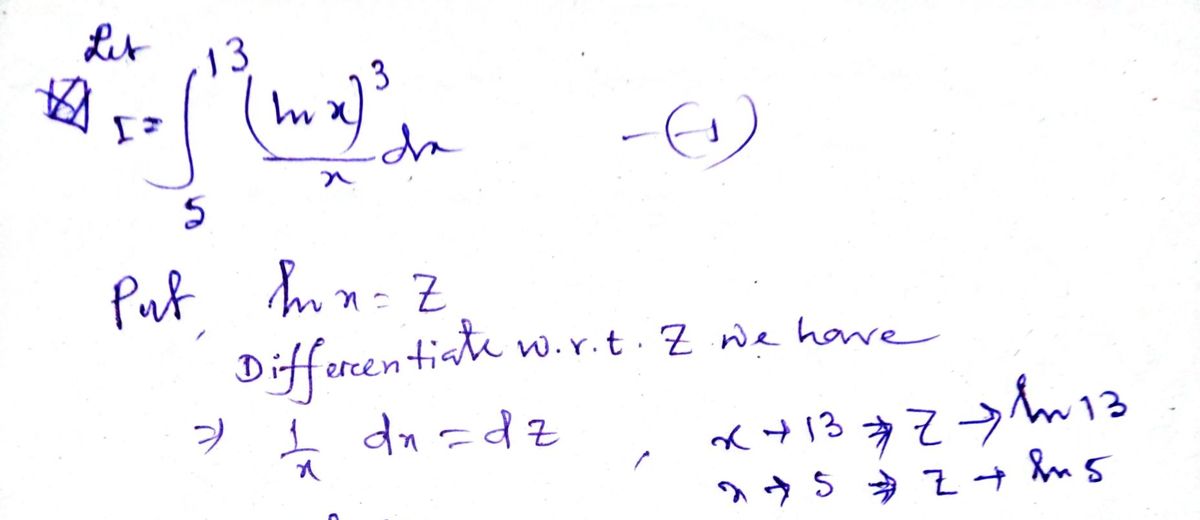 Let
I = ∫₅¹³ (ln x)³/x dx -(1)
Put, ln x = Z
Differentiate w.r.t. Z we have
⇒ 1/x dx = dZ , x → 13 ⇒ Z → ln 13
x → 5 ⇒ Z → ln 5